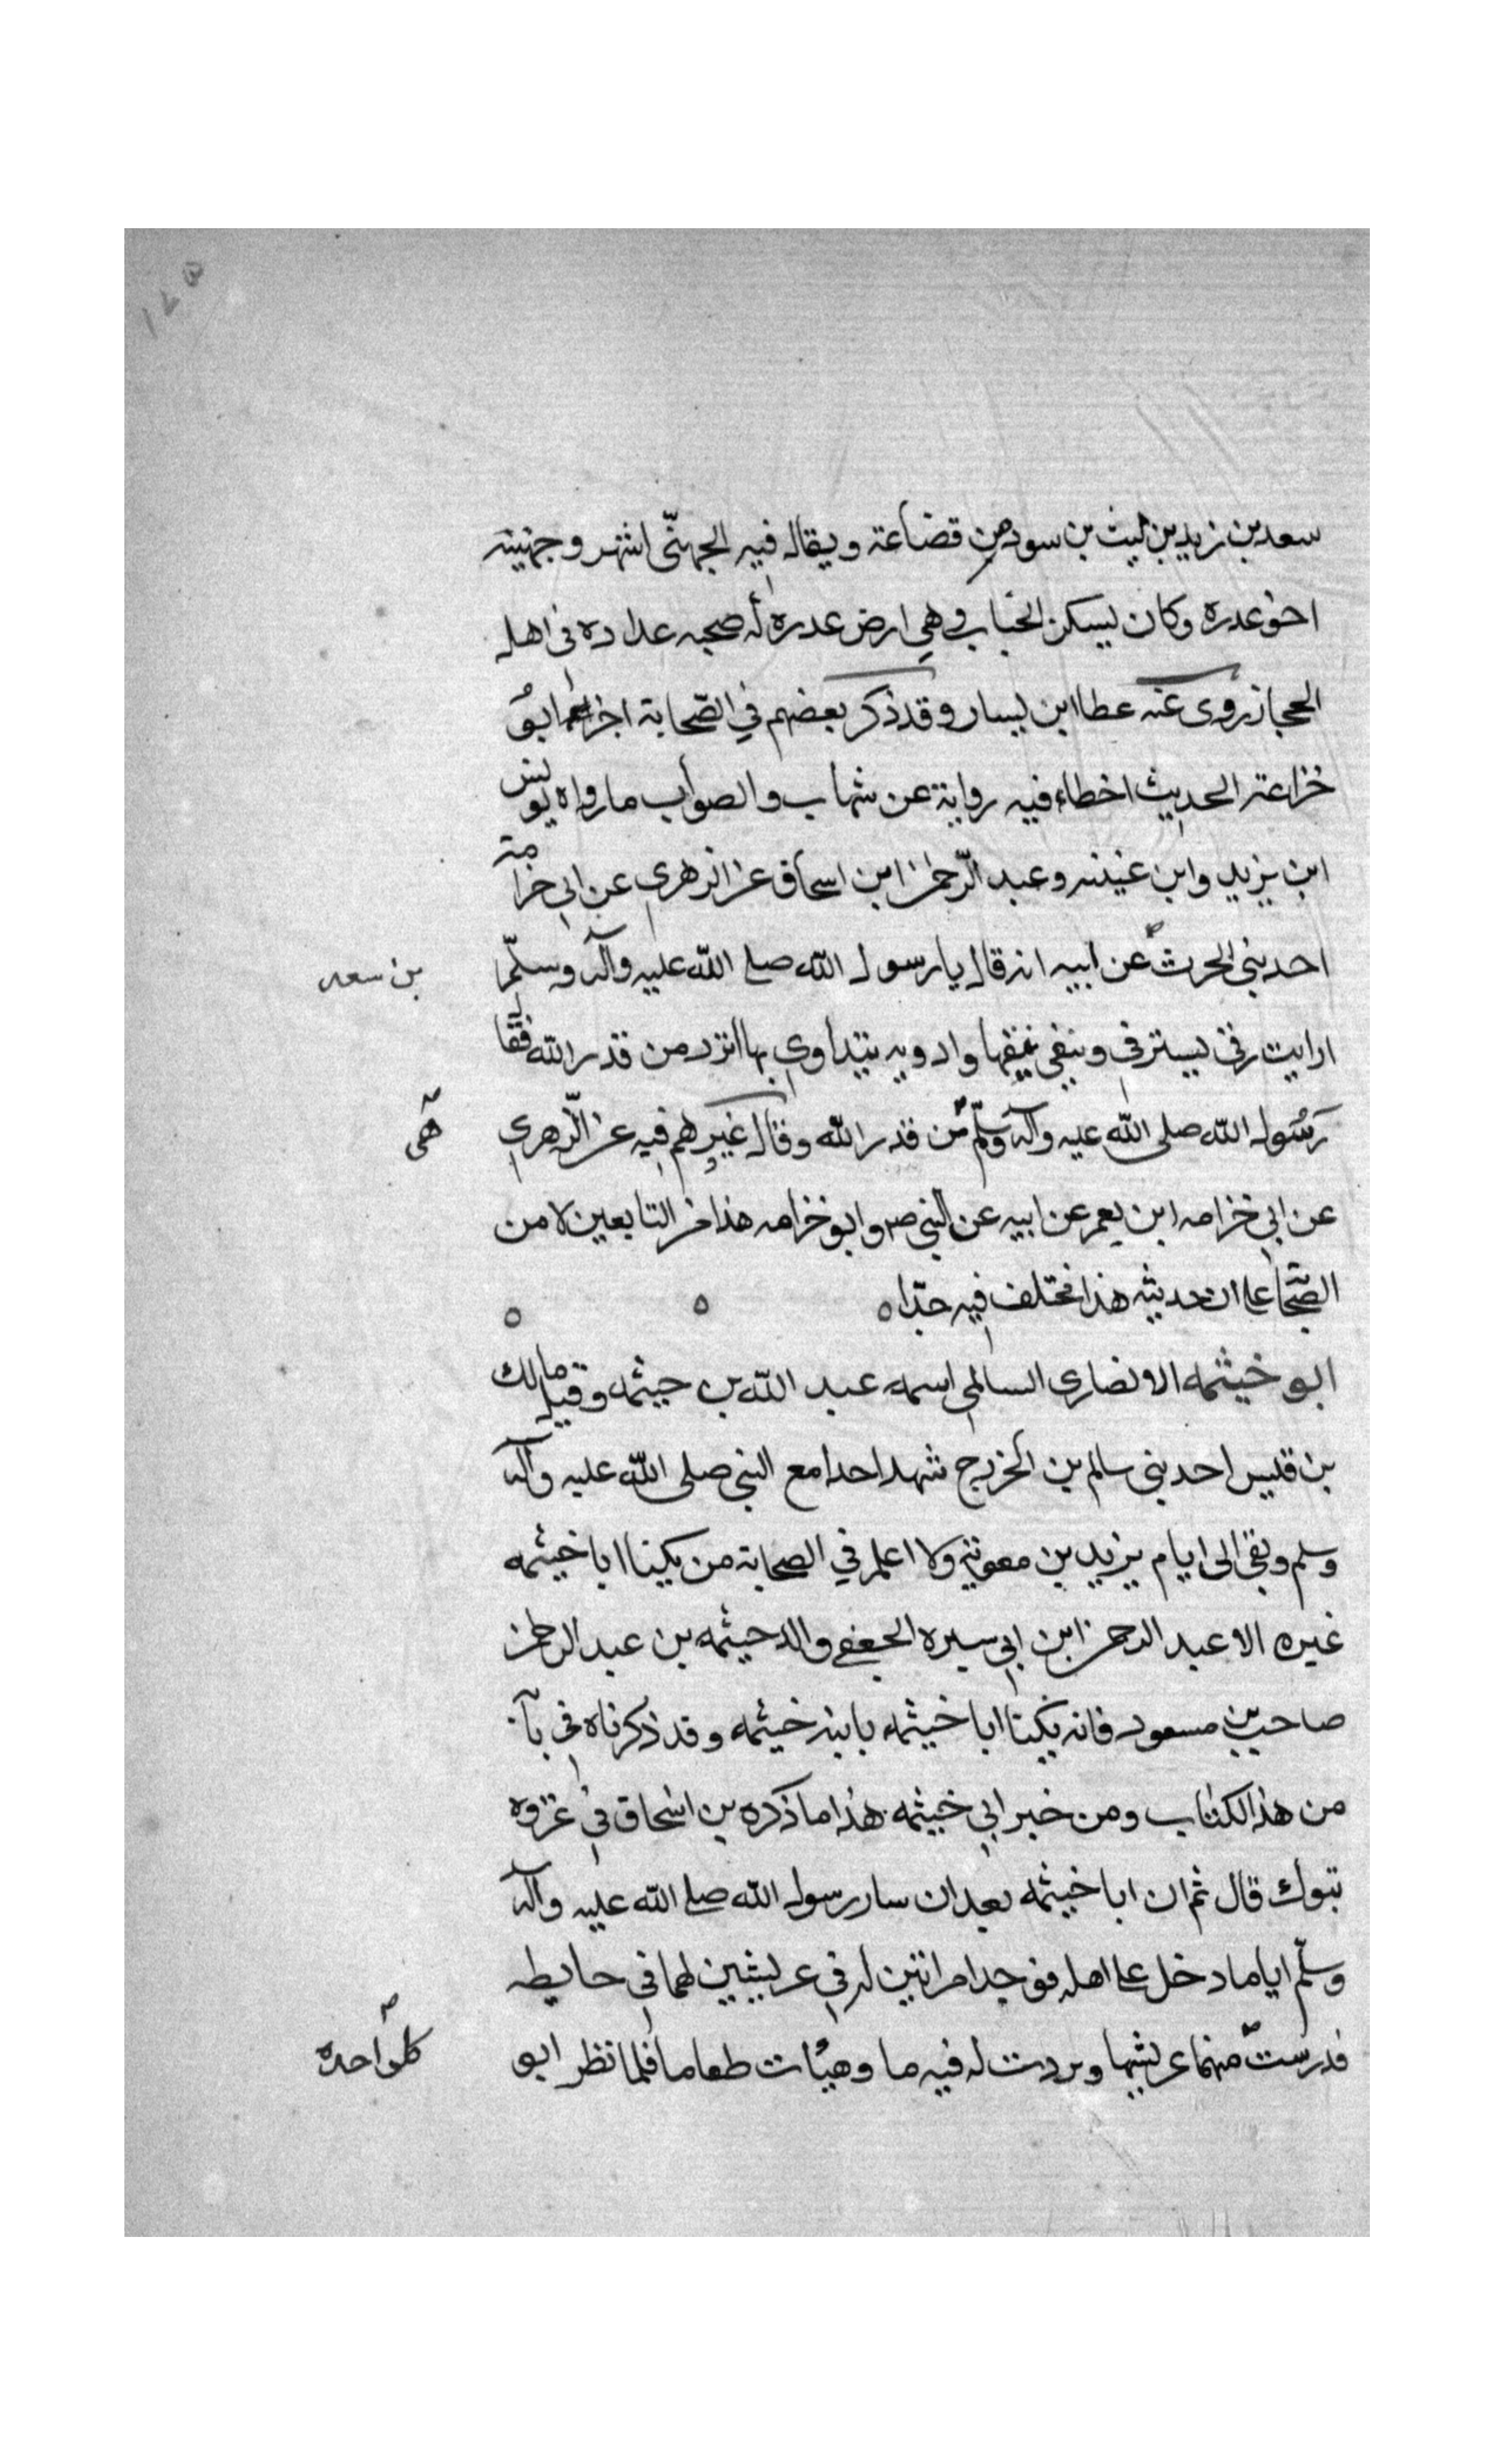 سعد بن زيد بن ليث بن سود من قضاعة ويقال فيه الجهني اشهر وجهنيته
اخو عدره وكان يسكن الخباب وهي ارض عدره له صحبه عداده في اهل
الحجاز روى عنه عطا ابن يسار وقد ذكر بعضهم في الصّحابة ابو
خزاعة الحديث اخطاء فيه رواية عن شهاب والصواب ما رواه يونس
ابن يزيد وابن عنينه وعبد الرّحمن ابن اسحاق عن الزهري عن ابي خزامة
احد بني الحرث عن ابيه انه قال يا رسول الله صلے الله عليه وآله وسلّم
بن سعد
ارايت رقى يسترقى وادويه يتداوي بها اترد من قدر الله فقال
رسُول الله صلى الله عليه وآله وسلّم من قدر الله وقال غيرهم فيه عن الزّهري
هي
عن ابي خزامه ابن يعمر عن ابيه عن النبي صم وابو خزامه هذا من التابعين لا من
الصّحابة علے ان حديثه هذا مختلف فيه جدّا ه ه ه
ابو خيثمه الانصاري السالمي اسمه عبد الله بن حيثمه وقيل مالك
بن قليس احد بني سالم بن الخزرج شهد احدا مع النبي صلى الله عليه وآله
وسلم وبقى الى ايام يزيد بن معوية ولا اعلم في الصحابة من يكينا ابا خيثمه
غيره الا عبد الرحمن ابن ابي سبره الجعفي والد حيثمه بن عبد الرحمن
صاحب بن مسعود فانه يكنا ابا خيثمه بابنه خيثمه وقد ذكرناه في بآ
من هذا الكتاب ومن خبر ابي خيثمه هذا ما ذكره بن اسحاق في غزوه
تبوك قال ثم ان ابا خيثمه بعد ان سار رسول الله صلے الله عليه وآله
وسلّم اياما دخل علے اهله فوجد امراتين له في عريشين لهما في حايطه
فد رست منهما عريشها وبردت له فيه ما وهيأت طعاما فلما نظر ابو
كل واحده